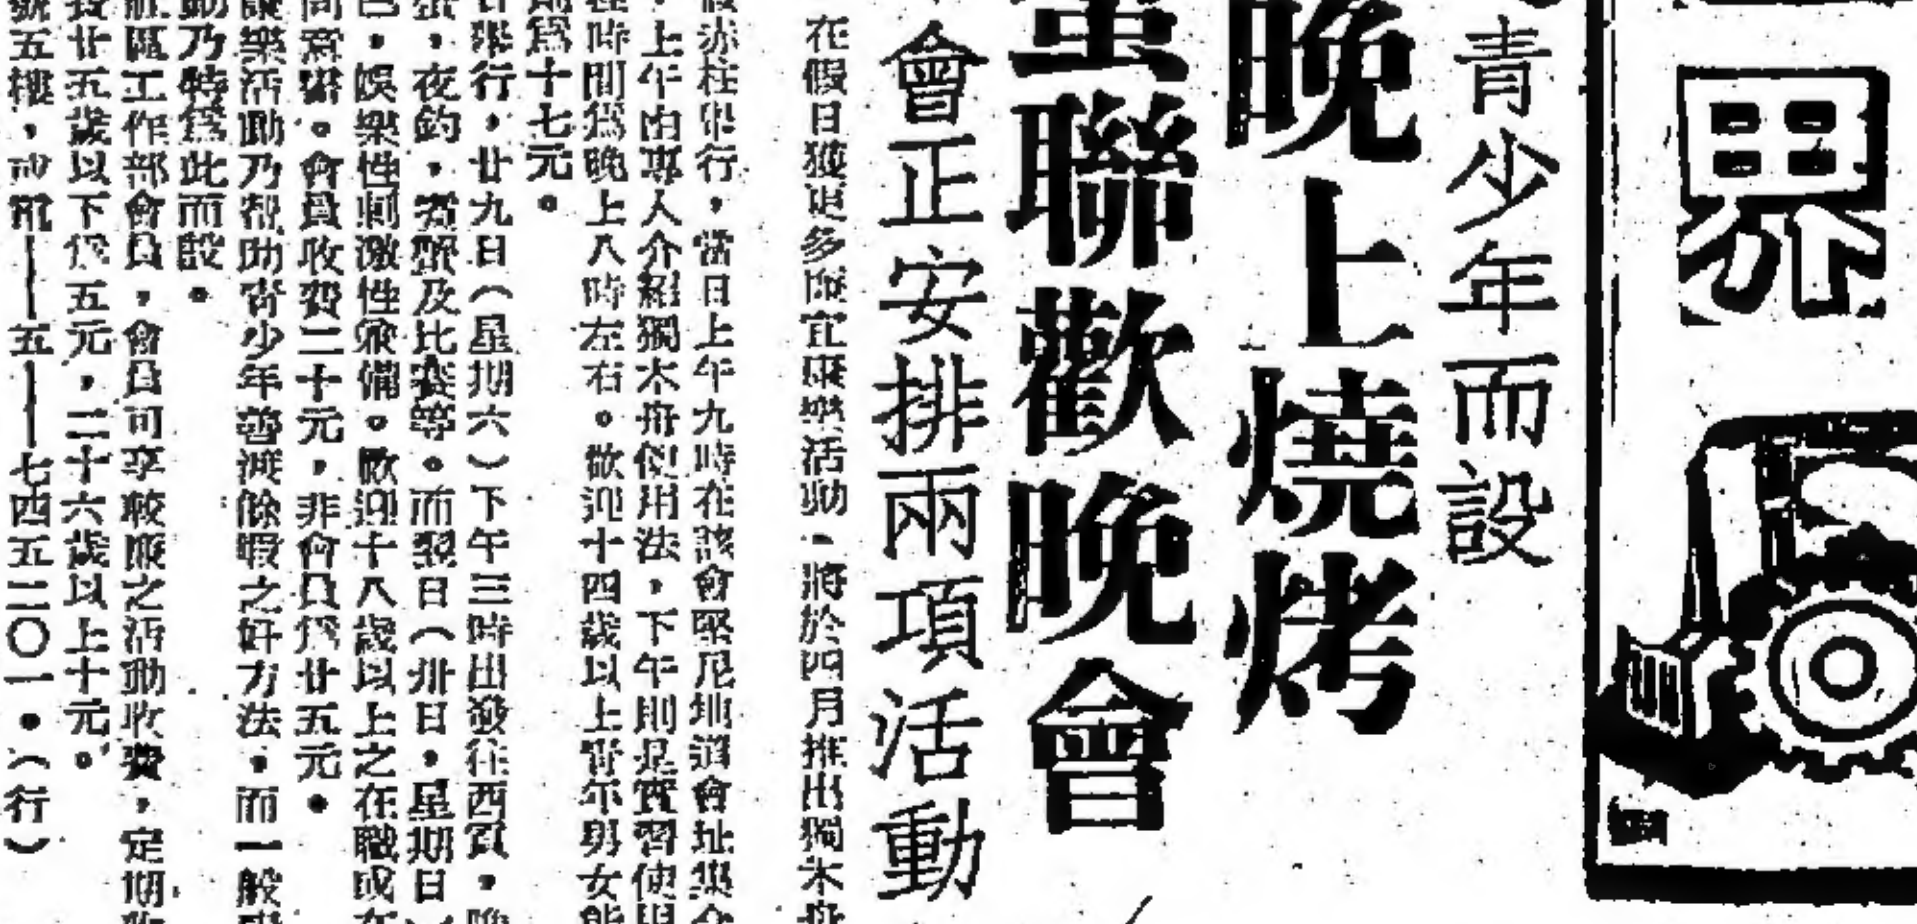 界
青少年而設
晚上燒烤
蛋聯歡晚會
會正安排兩項活動
在假日獲更多適宜康樂活動，將於四月推出獨木舟
赤柱舉行，當日上午九時在該會堅尼地道會址集合
，上午由專人介紹獨木舟使用法，下午則是實習使用
時間為晚上八時左右。歡迎十四歲以上青年男女
則為十七元。
舉行，廿九日（星期六）下午三時出發往西貢，晚
，夜釣，賽及比賽等。而翌日（卅日，星期日）
，娛樂性刺激性兼備。歡迎十八歲以上之在職或在
會員收費二十元，非會員為廿五元。
樂活動乃幫助青少年善渡餘暇之好方法，而一般
動乃特為此而設。
區工作部會員，會員可享較廉之活動收費，定期
廿五歲以下為五元，二十六歲以上十元。
號五樓，或電——五——七四五二〇一。（行）